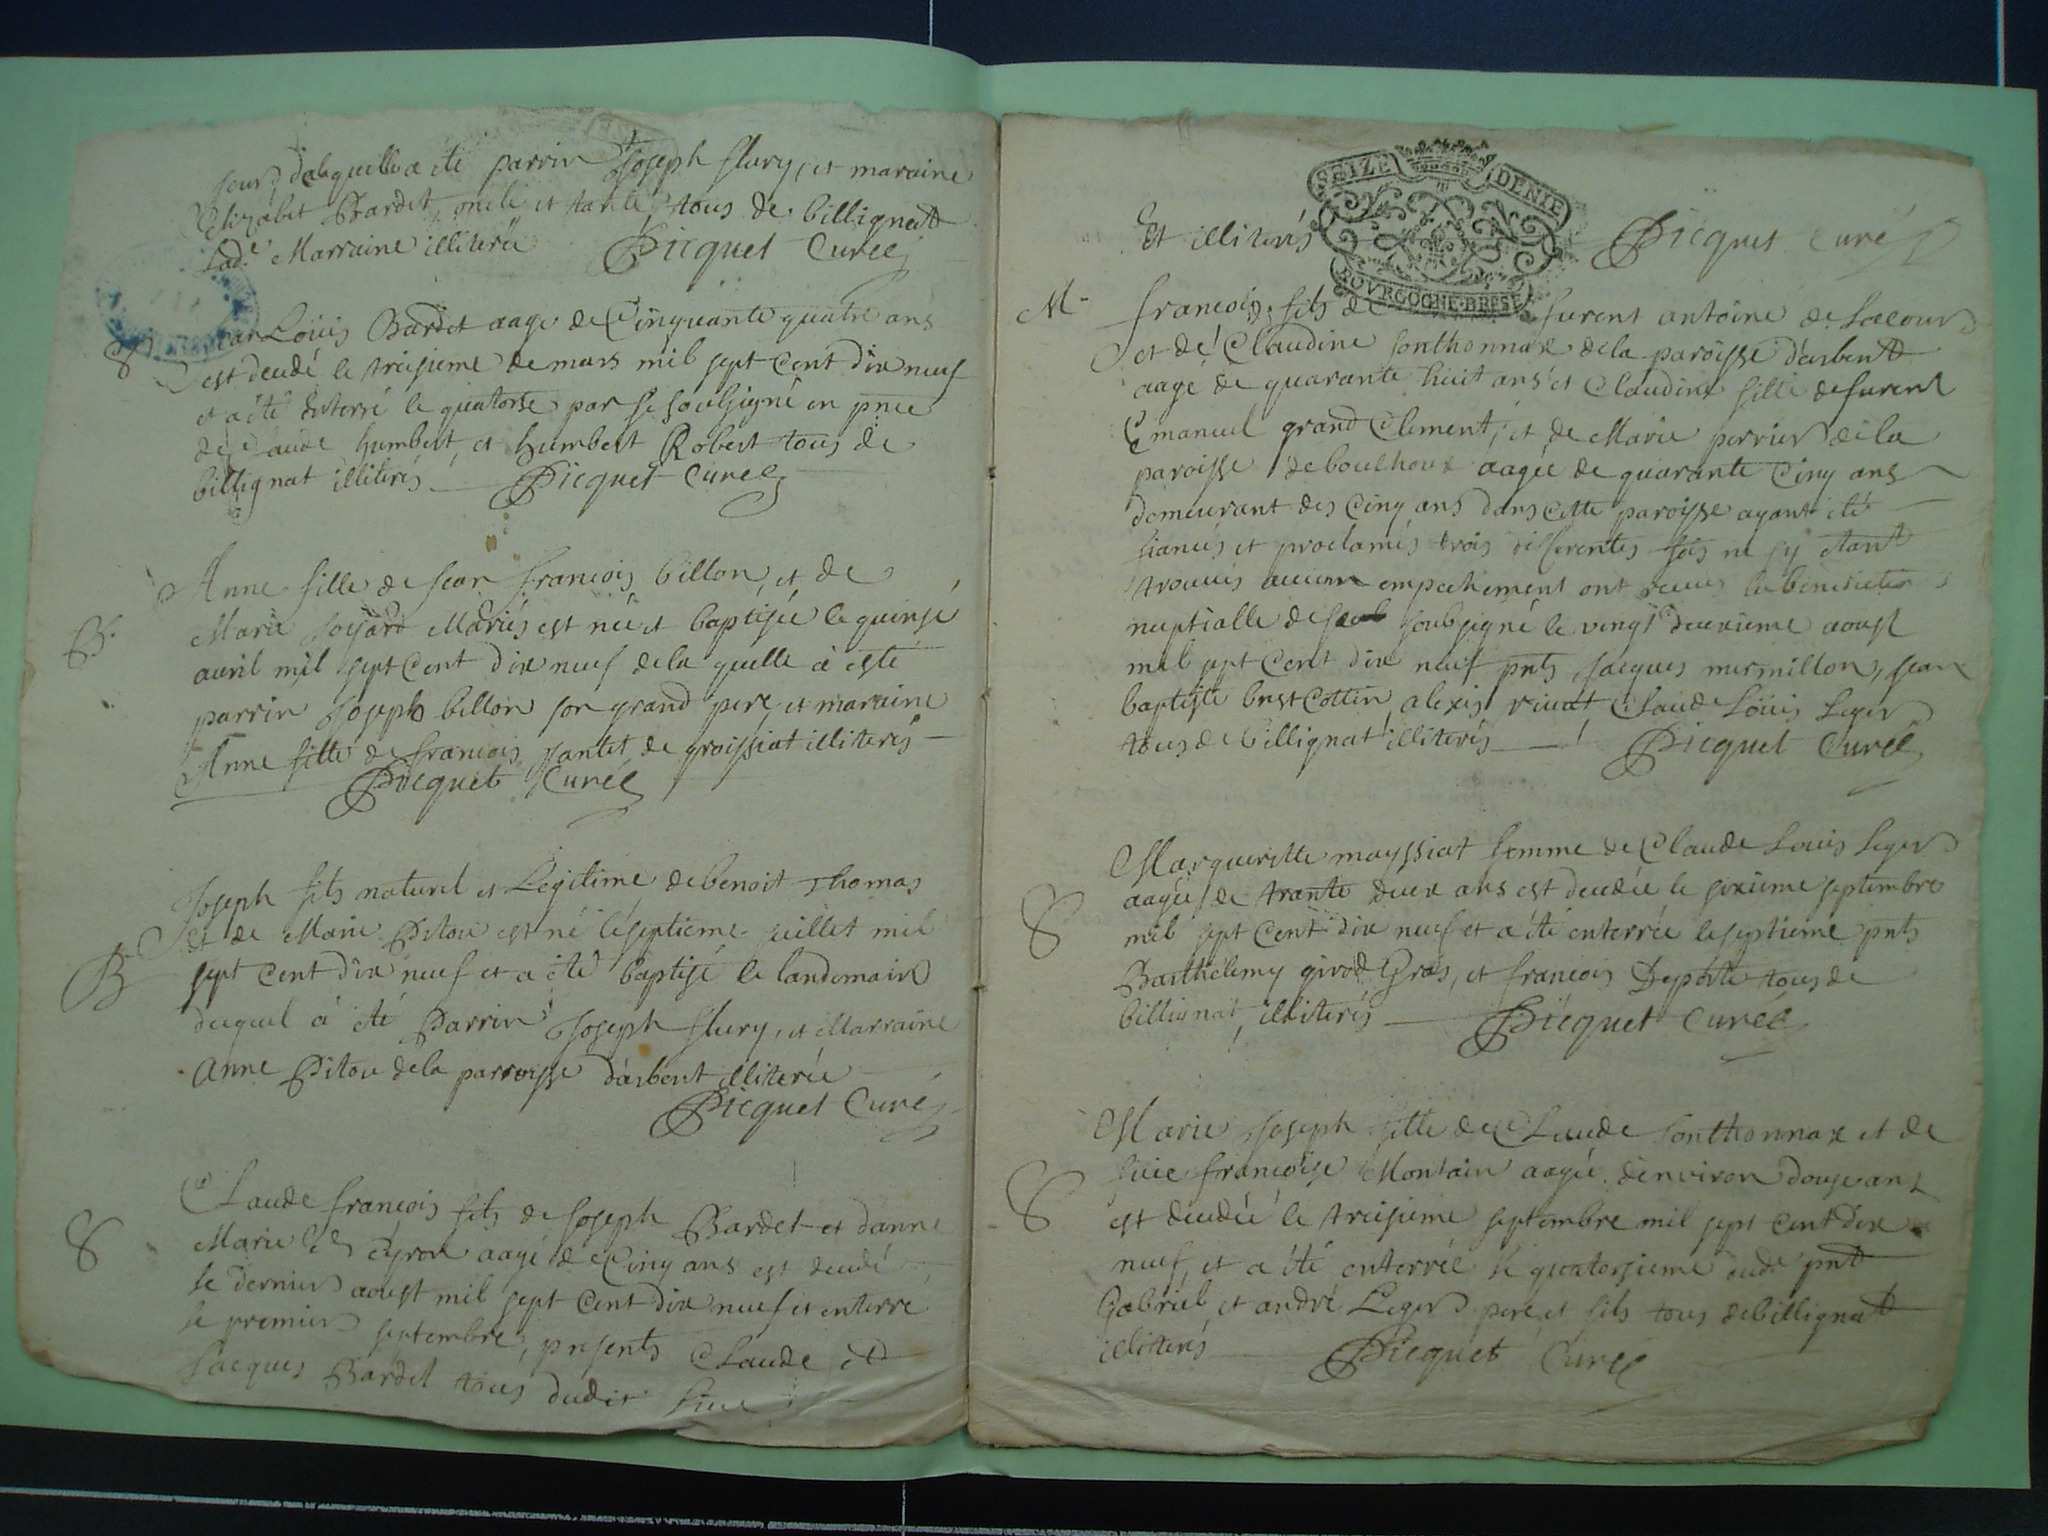 jour, de laquelle a été parrin Joseph flury, et maraine
Elizabet Bardet, oncle et tante, tous de billignat
lad.e Marraine illiterée Picquet Curé
Jean Loüis Bardet aagé de Cinquante quatre ans
est decedé le treisieme de mars mil sept Cent dix neuf
et a été enterré le quatorse par le soubsigné en pnce
de Claude humbert, et humbert Robert tous de
billignat illiterés Picquet Curé
S
Anne fille de Jean francois billon, et de
Marie Mariés est née et baptisée le quinse
B.
avril mil sept Cent dix neuf de la quelle à esté
parrin Joseph billon son grand pere, et maraine
Anne fille de francois Jantet de groissiat illiterés
Picquet Curé
Joseph fils naturel et Legitime de benoit Thomas
et de Marie Pitou est né le septieme juillet mil
B
sept Cent dix neuf et a été baptisé le landemain
duquel à été Parrin Joseph flury, et Marraine
Anne Pitou de la parroisse d'arbent illiterée
Picquet Curé
Claude francois fils de Joseph Bardet et danne
Marie Eyron aagé de Cinq ans est decedé
S
le dernier aoust mil sept Cent dix neuf et enterré
le premier septembre, presents Claude et
Jacques Bardet tous dudit lieu
SEIZE DENIE
BOVRGOGNE·BRESSE
Et illiterés Picquet Curé
M. francois, fils de furent antoine de Lacour
et de Claudine Sonthonnax de la paroisse d'arbent
aagé de quarante huit ans et Claudine fille de furent
Emanuel grand Clement, et de Marie perrier de la
paroisse de boulhoux aagée de quarante Cinq ans
demeurant des Cinq ans dans Cette paroisse ayant été
fiancés et proclamés trois differentes fois ne s'y étant
trouvés aucun empechement ont receu la benediction
neuptialle de soubsigné le vingt deuxieme aoust
mil sept Cent dix neuf pnts Jacques mermillon, Jean
baptiste Cottin, alexis vuat Claude Loüis Leger
tous de billignat illiterés Picquet Curé
Margueritte mayssiat femme de Claude Louis Leger
aagée de trante deux ans est decedée le sixieme septembre
S
mil sept Cent dix neuf et a été enterrée le septieme pnts
Barthelemy girod Gras, et francois Deporte tous de
billignat, illiterés Picquet Curé
Marie Joseph fille de Claude Sonthonnax et de
francoise Montain aagée denviron douse ans
S
est decedée le treisieme septembre mil sept Cent dix
neuf, et a été enterrée le quatorsieme dud. pnt
Gabriel et andré Leger pere et fils tous de billignat
illiterés Picquet Curé